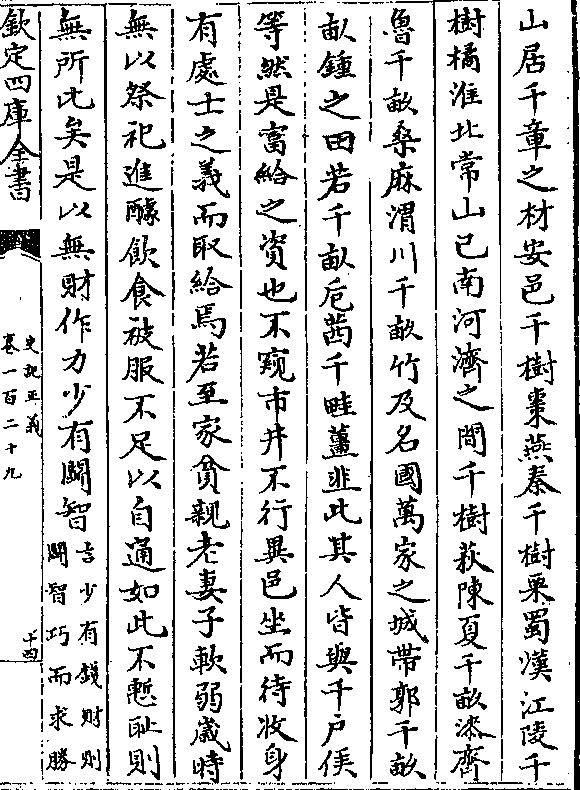 山居千章之材安邑千樹棗燕秦千樹栗蜀漢江陵千
樹橘淮北常山已南河濟之間千樹萩陳夏千畝漆齊
魯千畝桑麻渭川千畝竹及名國萬家之城帶郭千畝
畝鍾之田若千畝巵茜千畦薑韭此其人皆與千户侯
等然是富給之資也不窺市井不行異邑坐而待收身
有處士之義而取給焉若至家貧親老妻子軟弱歲時
無以祭祀進醵飲食被服不足以自通如此不慙耻則
無所比矣是以無財作力少有鬬智言少有錢財則
鬬智巧而求勝
欽定四庫全書
史記正義
卷一百二十九
十四